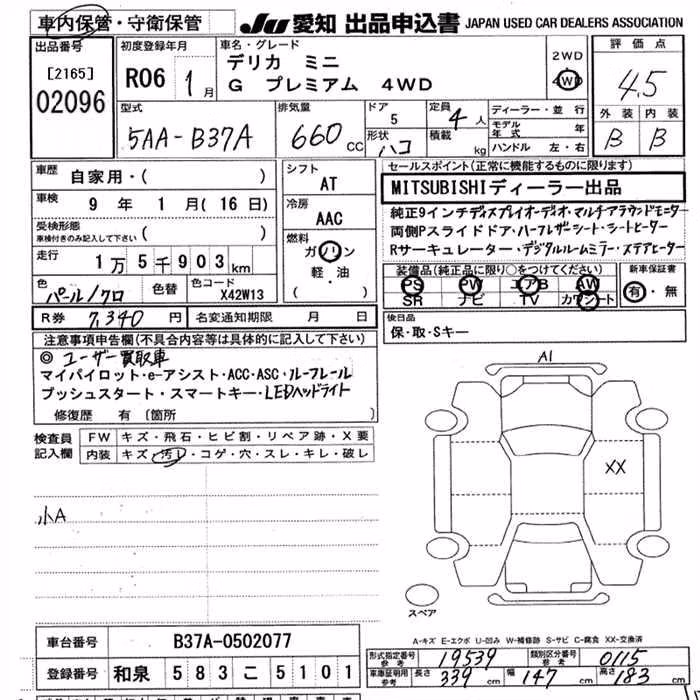 車内保管・守衛保管 JU 愛知 出品申込書 JAPAN USED CAR DEALERS ASSOCIATION
出品番号 [2165] 02096
初度登録年月 R06 1月
車名・グレード デリカ ミニ
G プレミアム 4WD
2WD
4WD
評価点 4.5
外装 内装
B B
型式 5AA-B37A
排気量 660 CC
ドア 5
形状 ハコ
定員 4人
積載 kg
ディーラー・並行
モデル年式 年
ハンドル 左・右
車歴 自家用・( )
車検 9年 1月(16日)
受検形態
車検付きのみ記入して下さい ( )
走行 1万5千903km
色 パール/クロ 色替 色コード X42W13
シフト AT
冷房 AAC
燃料 ガソリン
軽・油
( )
セールスポイント(正常に機能するものに限ります)
MITSUBISHIディーラー出品
純正9インチディスプレイオーディオ・マルチアラウンドモニター
両側Pスライドドア・ハーフレザーシート・シートヒーター
Rサーキュレーター・デジタルルームミラー・ステアヒーター
装備品(純正品に限り○をつけてください)
PS PW エアB AW
SR ナビ TV カワシート
新車保証書
有・無
R券 7,340円 名変通知期限 月 日
後日品
保・取・Sキー
注意事項申告欄(不具合内容等は具体的に記入して下さい)
◎ユーザー買取車
マイパイロット・e-アシスト・ACC・ASC・ルーフレール
プッシュスタート・スマートキー・LEDヘッドライト
修復歴 有 (箇所
検査員記入欄
FW キズ・飛石・ヒビ割・リペア跡・X要
内装 キズ・汚レ・コゲ・穴・スレ・キレ・破レ
小A
A1
XX
スペア
A-キズ E-エクボ U-凹み W-補修跡 S-サビ C-腐食 XX-交換済
車台番号 B37A-0502077
登録番号 和泉 583 こ 5101
形式指定番号 参考 19539 類別区分番号 参考 0115
車車証明用 参考 長さ 339cm 幅 147cm 高さ 183cm